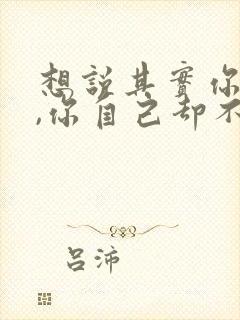 想說其實你
,你自己却不
吕沛